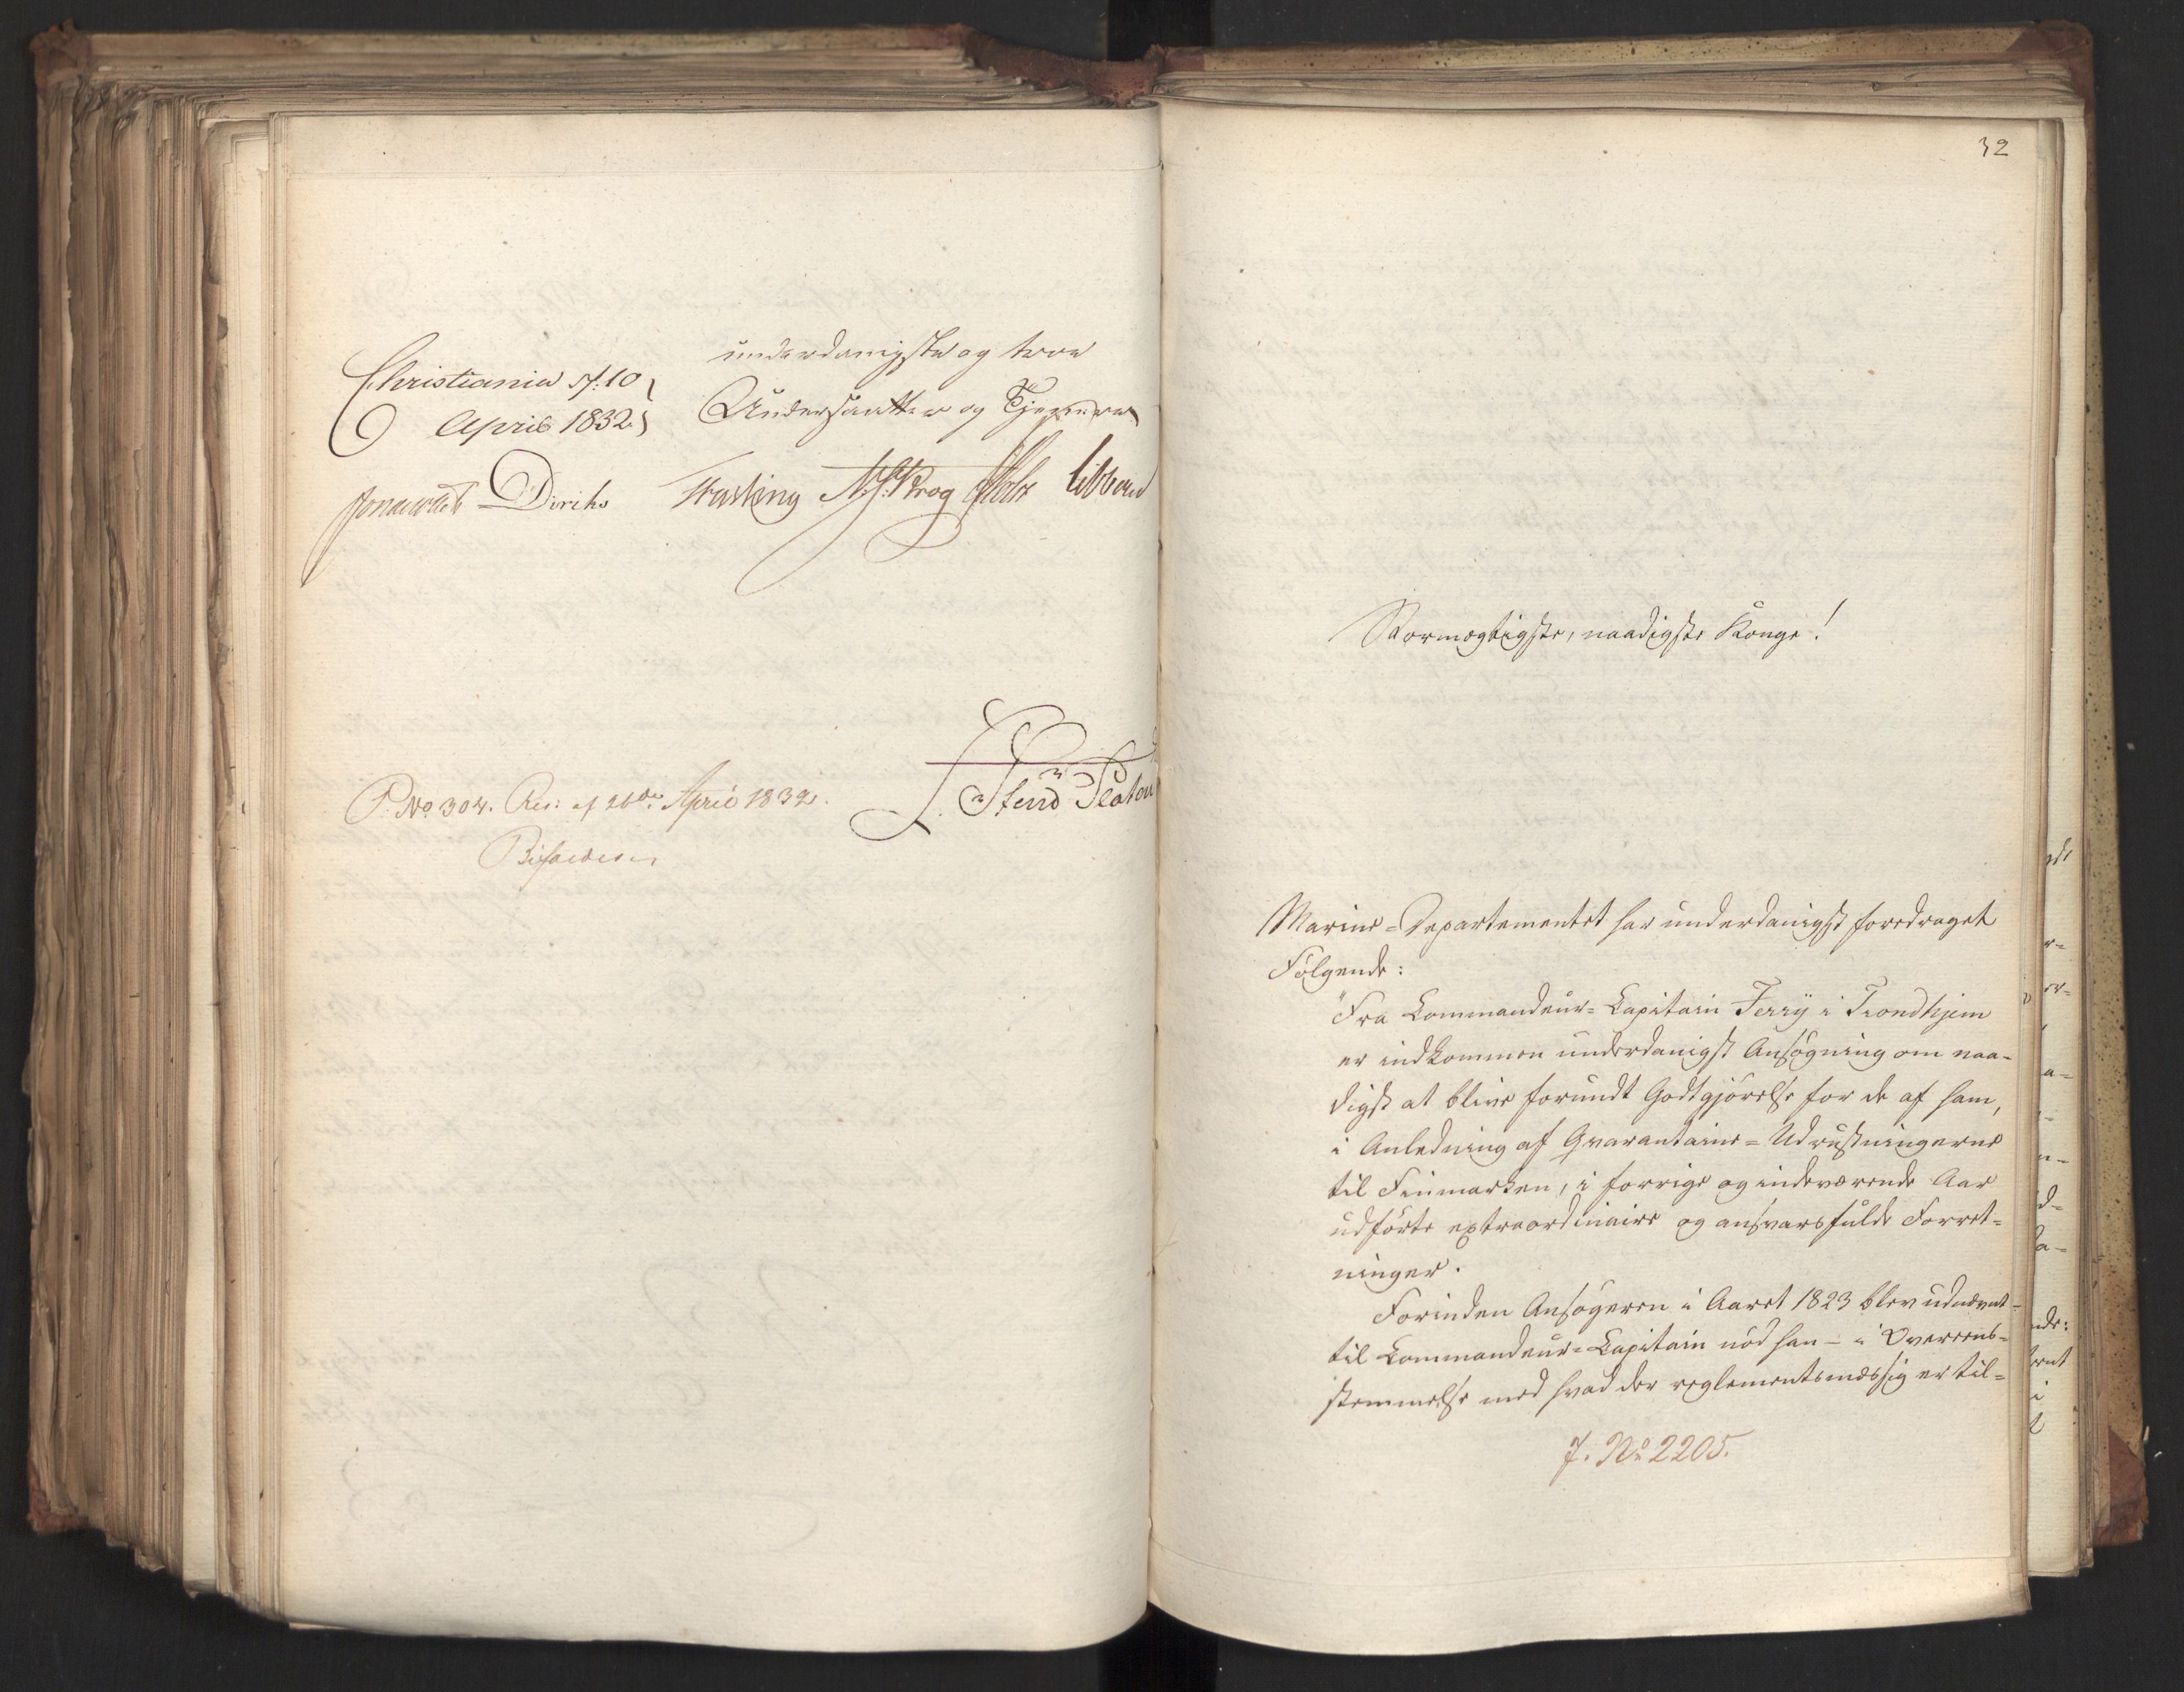 underdanigste og troe
Christiania d: 10
April 1832.
Undersaatter og Tjenere
Jonas Collett Diriks Fasting M: S: Krog Holst Vibe
P. No 304. Res: af 26de April 1832.
Bifaldes
32
Stormægtigste, naadigste Konge!
Marine=Departementet har underdanigst foredraget
Følgende:
"Fra Commandeur=Capitain Ferrÿ i Trondhjem
er indkommen underdanigst Ansøgning om naa-
digst at blive forundt Godtgjørelse for de af ham,
i Anledning af Qvarantaine=Udrustningerne
til Finmarken, i forrige og indeværende Aar
udførte extraordinaire og ansvarsfulde Forret=
ninger.
Forinden Ansøgeren i Aaret 1823 blev udnævnt
til Commandeur=Capitain nød han - i Overeens=
stemmelse med hvad der reglementsmæssig er til=
J. No 2205.